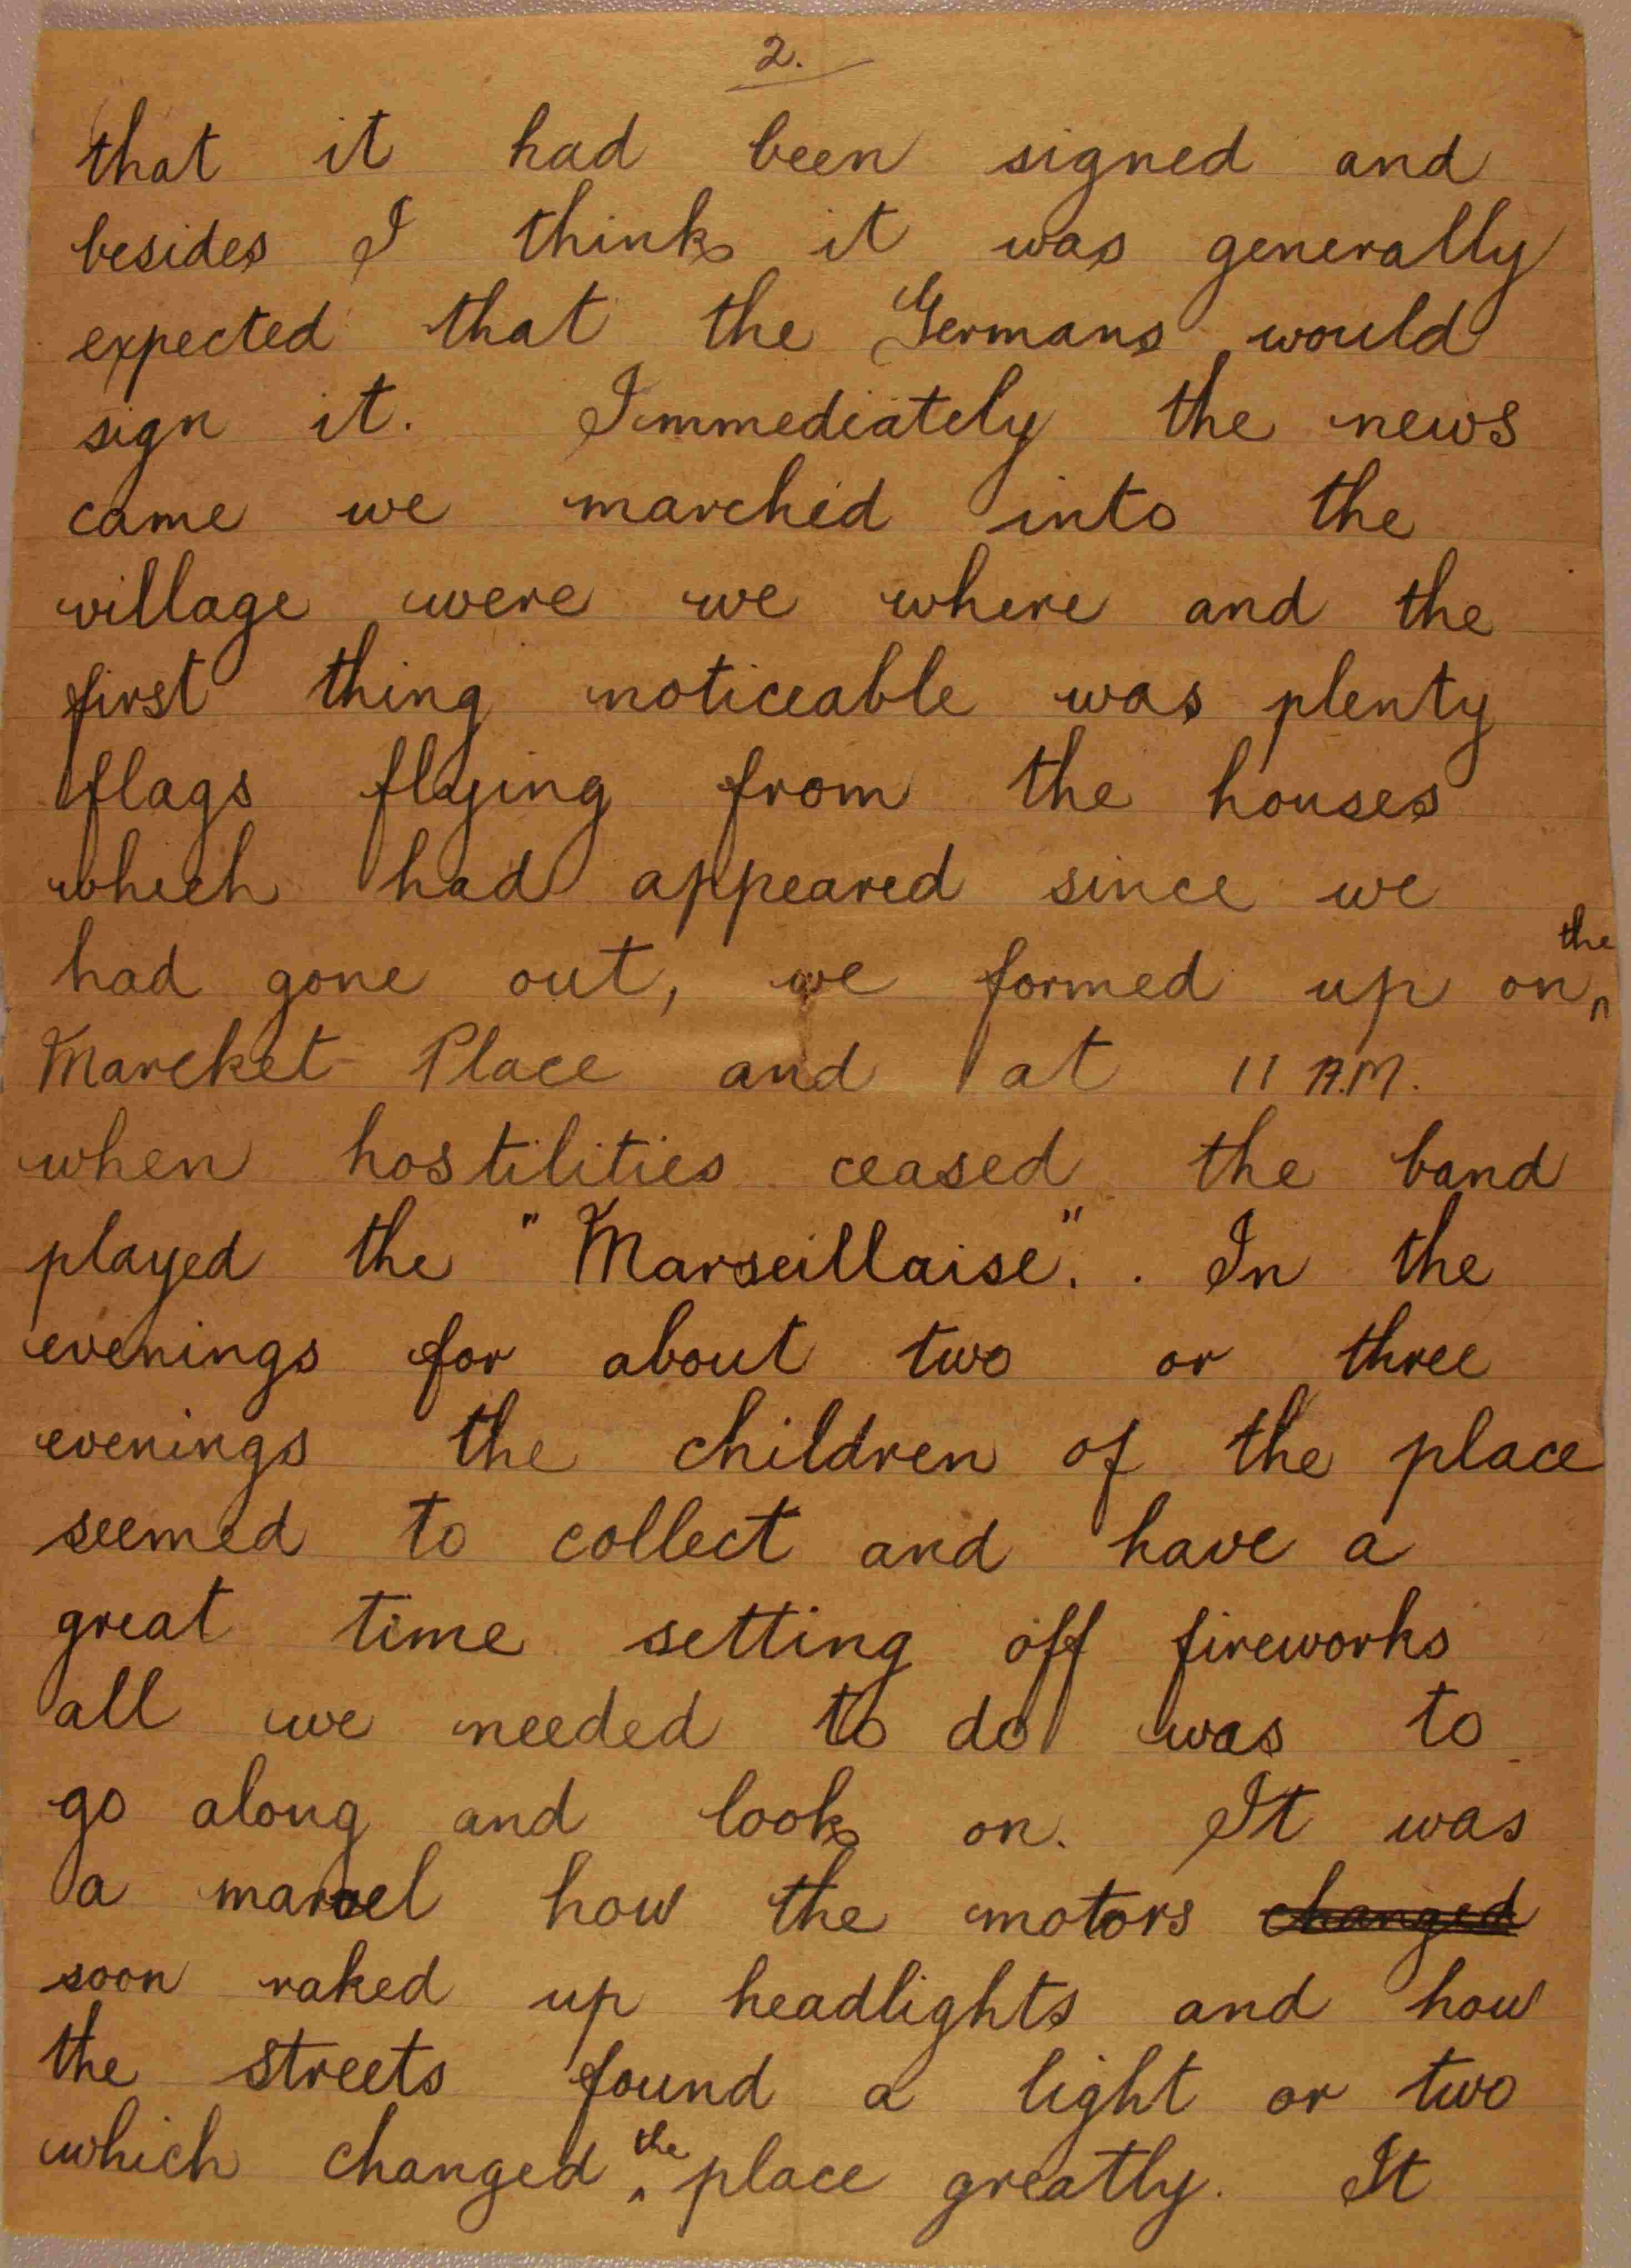 2.
that it had been signed and
besides I think it was generally
expected that the Germans would
sign it. Immediately the news
came we marched into the
village were we where and the
first thing noticeable was plenty
flags flying from the houses
which had appeared since we
had gone out, we formed up on the
Marcket Place and at 11 A.M.
when hostilities ceased the band
played the "Marseillaise". . In the
evenings for about two or three
evenings the children of the place
seemed to collect and have a
great time setting off fireworks
all we needed to do was to
go along and look on. It was
a marvel how the motors changed
soon raked up headlights and how
the streets found a light or two
which changed the place greatly. It